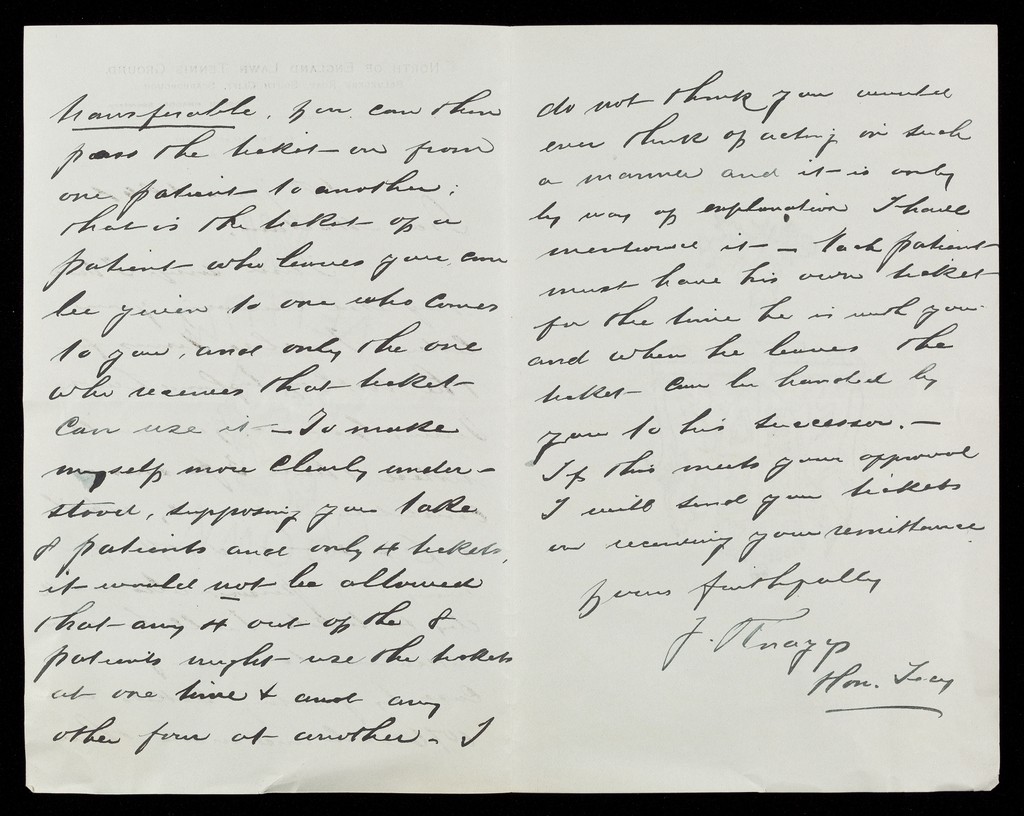 transferable, you can then
pass the ticket on from
one patient to another;
that is the ticket of a
patient who leaves you, can
be given to one who comes
to you, and only the one
who receives that ticket
can use it – To make
myself more clearly under-
stood, supposing you take
8 patients and only 4 tickets,
it would not be allowed
that any 4 out of the 8
patients might use the tickets
at one time & and any
other four at another – I
do not think you would
ever think of acting in such
a manner and it is only
by way of explanation I have
mentioned it – Each patient
must have his own ticket
for the time he is with you
and when he leaves the
ticket can be handed by
you to his successor. –
If this meets your approval
I will send you tickets
on receiving your remittance
Yours faithfully
J.
Hon. Secy
NORTH OF ENGLAND LAWN TENNIS GROUND.